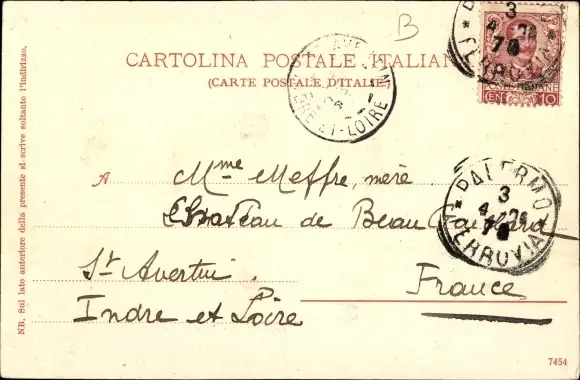 B
CARTOLINA POSTALE ITALIAN
(CARTE POSTALE D'ITALIE.)
POSTE ITALIANE
CEN 10
3
4
FERROVIA
ET-LOIRE
A Mme Meffre, mère
Château de Beau
St Avertin.
France
Indre et Loire
PALERMO
3
4
FERROVIA
NB. Sul lato anteriore della presente si scrive soltanto l'indirizzo.
7454